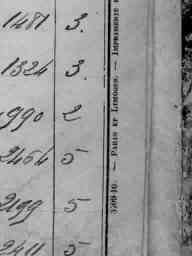 1481. 3.
1324 3.
990 2
2464 5
2199 5
2411 5
5709-10. — PARIS ET LIMOGES. — IMPRIMERIE